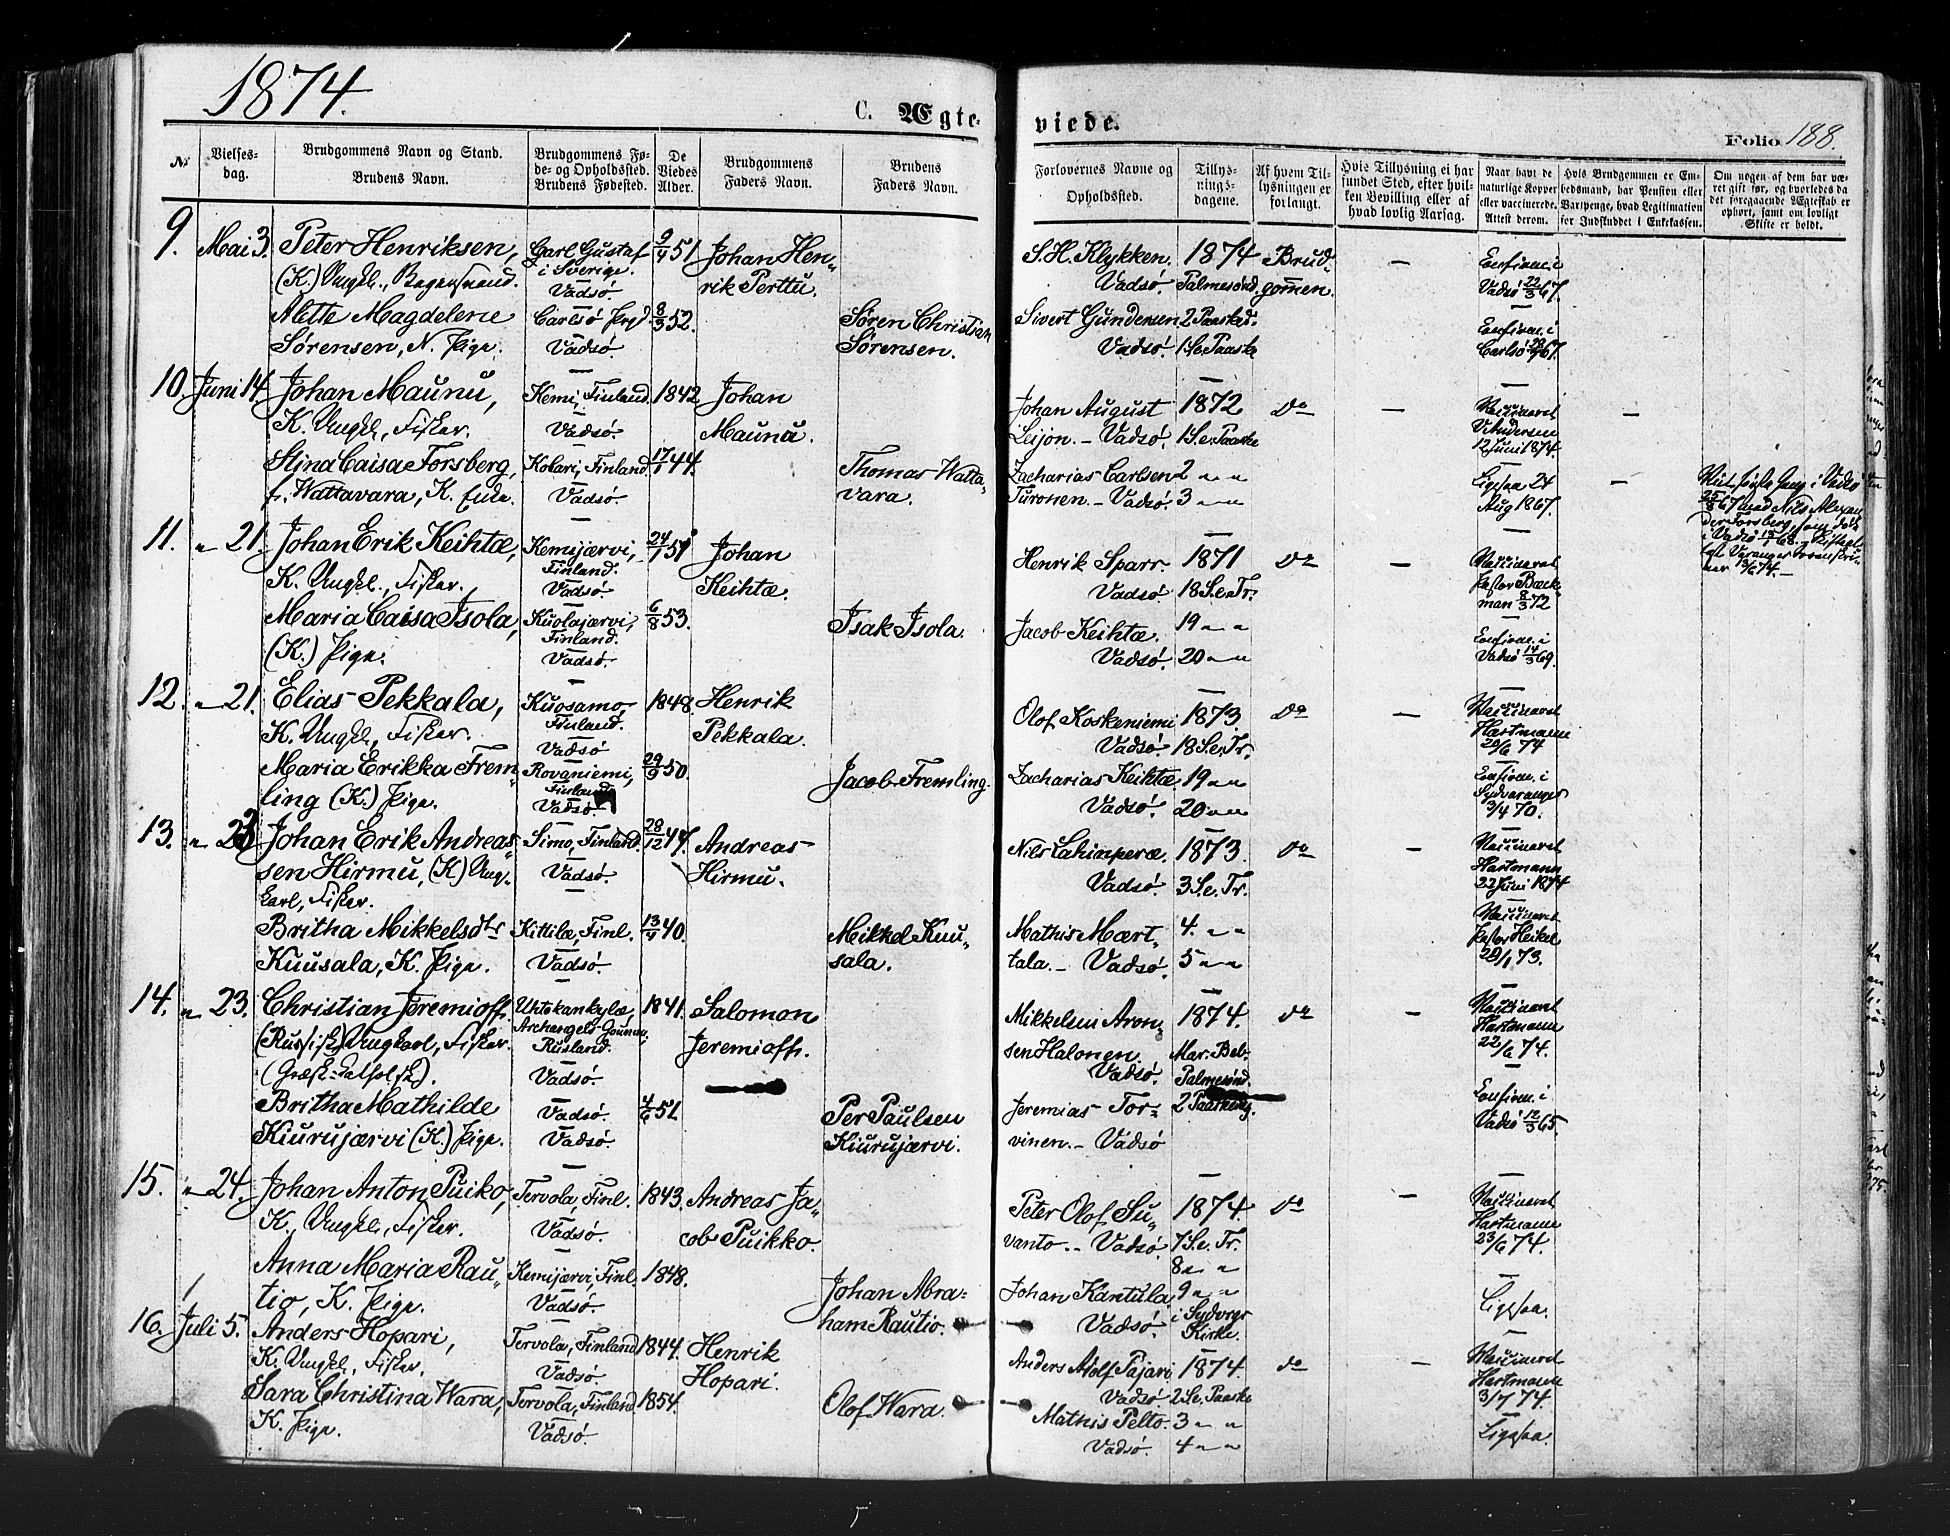 1874.
C. Ægte-
viede.
Folio 188.
No
Vielses-
dag.
Brudgommens Navn og Stand.
Brudens Navn.
Brudgommens Fø-
de- og Opholdssted.
Brudens Fødested.
De
Viedes
Alder.
Brudgommens
Faders Navn.
Brudens
Faders Navn.
Forlovernes Navne og
Opholdssted.
Tillys-
nings-
dagene.
Af hvem Til-
lysningen er
forlangt.
Hvis Tillysning ei har
fundet Sted, efter hvil-
ken Bevilling eller af
hvad lovlig Aarsag.
Naar havt de
naturlige Kopper
eller vaccinerede.
Attest derom.
Hvis Brudgommen er Em-
bedsmand, har Pension eller
Vartpenge, hvad Legitimation
for Indskuddet i Enkekassen.
Om nogen af dem har væ-
ret gift før, og hvorledes da
det foregaaende Ægteskab er
ophørt, samt om lovligt
Skifte er holdt.
9. Mai 3. Peter Henriksen,
(K.) Ungk.,
Carl Gustaf
i Sverige.
Vadsø.
9/4 51
Johan Hen-
rik Perttu.
S. H. Klykken.
Vadsø.
1874
Palmesønd.
Brud-
gommen.
—
Confirm. i
Vadsø 22/3 67.
Mette Magdelene
Sørensen, N. Pige.
Carlsø Prgd
Vadsø.
8/3 52.
Søren Christian
Sørensen.
Sivert Gundersen
Vadsø.
2 Paasked.
1 S. e. Paaske
Confirm. i
Carlsø 67.
10. Juni 14. Johan Maunu,
K. Ungk., Fisker.
Kemi, Finland.
Vadsø.
1842.
Johan
Maunu.
Johan August
Leijon. – Vadsø.
1872
1 S. e. Paaske
Do
—
Vaccineret
V. Andersen
12 Juni 1874
—
Stina Caisa Forsberg,
f. Wattavara, K. Enke.
Kolari, Finland.
Vadsø.
17/1 44.
Thomas Watta-
vara.
Zacharias Carlsen
Turonen. – Vadsø.
2 " "
3 " "
Ligesaa 24
Aug 1867.
—
i Vadsø
25/8 67 med Nils Alexan
der Forsberg, som døde
i Vadsø
11. " 21. Johan Erik Keihtæ,
K. Ungk., Fisker.
Kemijærvi,
Finland.
Vadsø.
24/1 51
Johan
Keihtæ.
Henrik Sparr.
Vadsø.
1871
18 S. e. Tr.
Do
—
Vaccineret
Pastor Bæck-
man 8/3 72
Maria Caisa Isola,
(K.) Pige.
Kuolajærvi,
Finland.
Vadsø.
6/8 53.
Isak Isola.
Jacob Keihtæ.
Vadsø.
19 " "
20 " "
Confirm. i
Vadsø 14/3 69.
12. " 21. Elias Pekkala,
K. Ungk., Fisker.
Kuosamo,
Finland.
Vadsø
1848.
Henrik
Pekkala.
Olof Koskeniemi
Vadsø.
1873.
18 S. e. Tr.
Do
—
Vaccineret
Hartmann
20/6 74
Maria Erikka Frem-
ling (K.) Pige.
Rovaniemi,
Finland
Vadsø.
29/9 50.
Jacob Fremling.
Zacharias Keihtæ
Vadsø.
19 " "
20 " "
Confirm. i
Sydvaranger
3/4 70.
13. " 23 Johan Erik Andreas-
sen Hirmu, (K) Ung-
karl, Fisker.
Simo, Finland.
Vadsø.
28/12 47.
Andreas
Hirmu.
Nils Lahinperæ.
Vadsø.
1873.
3 S. e. Tr.
Do
—
Vaccineret
Hartmann
22 Juni 1874
Britha Mikkelsdtr
Kuusala, K. Pige.
Kittilæ, Finl.
Vadsø.
13/4 40.
Mikkel Kuu-
sala.
Mathis Mært-
tala. – Vadsø.
4. " "
5 " "
Vaccineret
Pastor Heikel
29/1 73.
14. " 23. Christian Jeremioff.
(Russisk) Ungkarl, Fisker.
(Græsk-katholsk).
Uhtokankylæ,
Archangels-Gouvern.
Rusland.
Vadsø.
1841.
Salomon
Jeremioff.
Mikkelsen Aron-
sen Halonen.
Vadsø.
1874.
Mar. Beb.
Palmesønd.
Do
—
Vaccineret
Hartmann
22/6 74.
Britha Mathilde
Kiurujærvi (K.) Pige.
Vadsø.
Vadsø.
4/6 51.
Per Paulsen
Kiurujærvi.
Jeremias Tor-
vinen. – Vadsø
2 Paaskedg.
Confirm. i
Vadsø 12/3 65.
15. " 24. Johan Anton Puiko,
K. Ungk., Fisker.
Tervola, Finl.
Vadsø.
1843.
Andreas Ja-
cob Puikko.
Peter Olof Su-
vanto. – Vadsø.
1874.
7 S. e. Tr.
8 " "
Do
—
Vaccineret
Hartmann
23/6 74.
Anna Maria Rau-
tio, K. Pige.
Kemijærvi, Finl.
Vadsø.
1848.
Johan Abra-
ham Rautio.
Johan Kantula.
Vadsø.
9 " "
i Sydvrgr
Kirke.
Ligesaa.
16. Juli 5. Anders Hopari,
K. Ungk., Fisker.
Tervola, Finland
Vadsø.
1844.
Henrik
Hopari.
Anders Adolf Pajari
Vadsø.
1874.
2 S. e. Paaske
do
—
Vaccineret
Hartmann
3/7 74.
Sara Christina Wara,
K. Pige.
Tervola, Finland
Vadsø.
1854.
Olof Wara.
Mathis Pelto.
Vadsø.
3 " "
4 " "
Ligesaa.